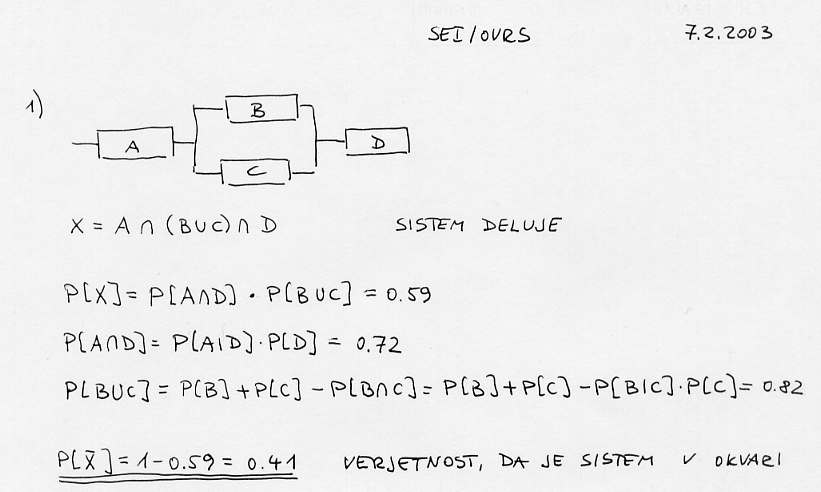 SEI/OVRS 7.2.2003
1)
B
A
D
C
X = A ∩ (B∪C) ∩ D SISTEM DELUJE
P[X] = P[A∩D] · P[B∪C] = 0.59
P[A∩D] = P[A|D] · P[D] = 0.72
P[B∪C] = P[B] + P[C] - P[B∩C] = P[B] + P[C] - P[B|C] · P[C] = 0.82
P[X̄] = 1 - 0.59 = 0.41 VERJETNOST, DA JE SISTEM V OKVARI